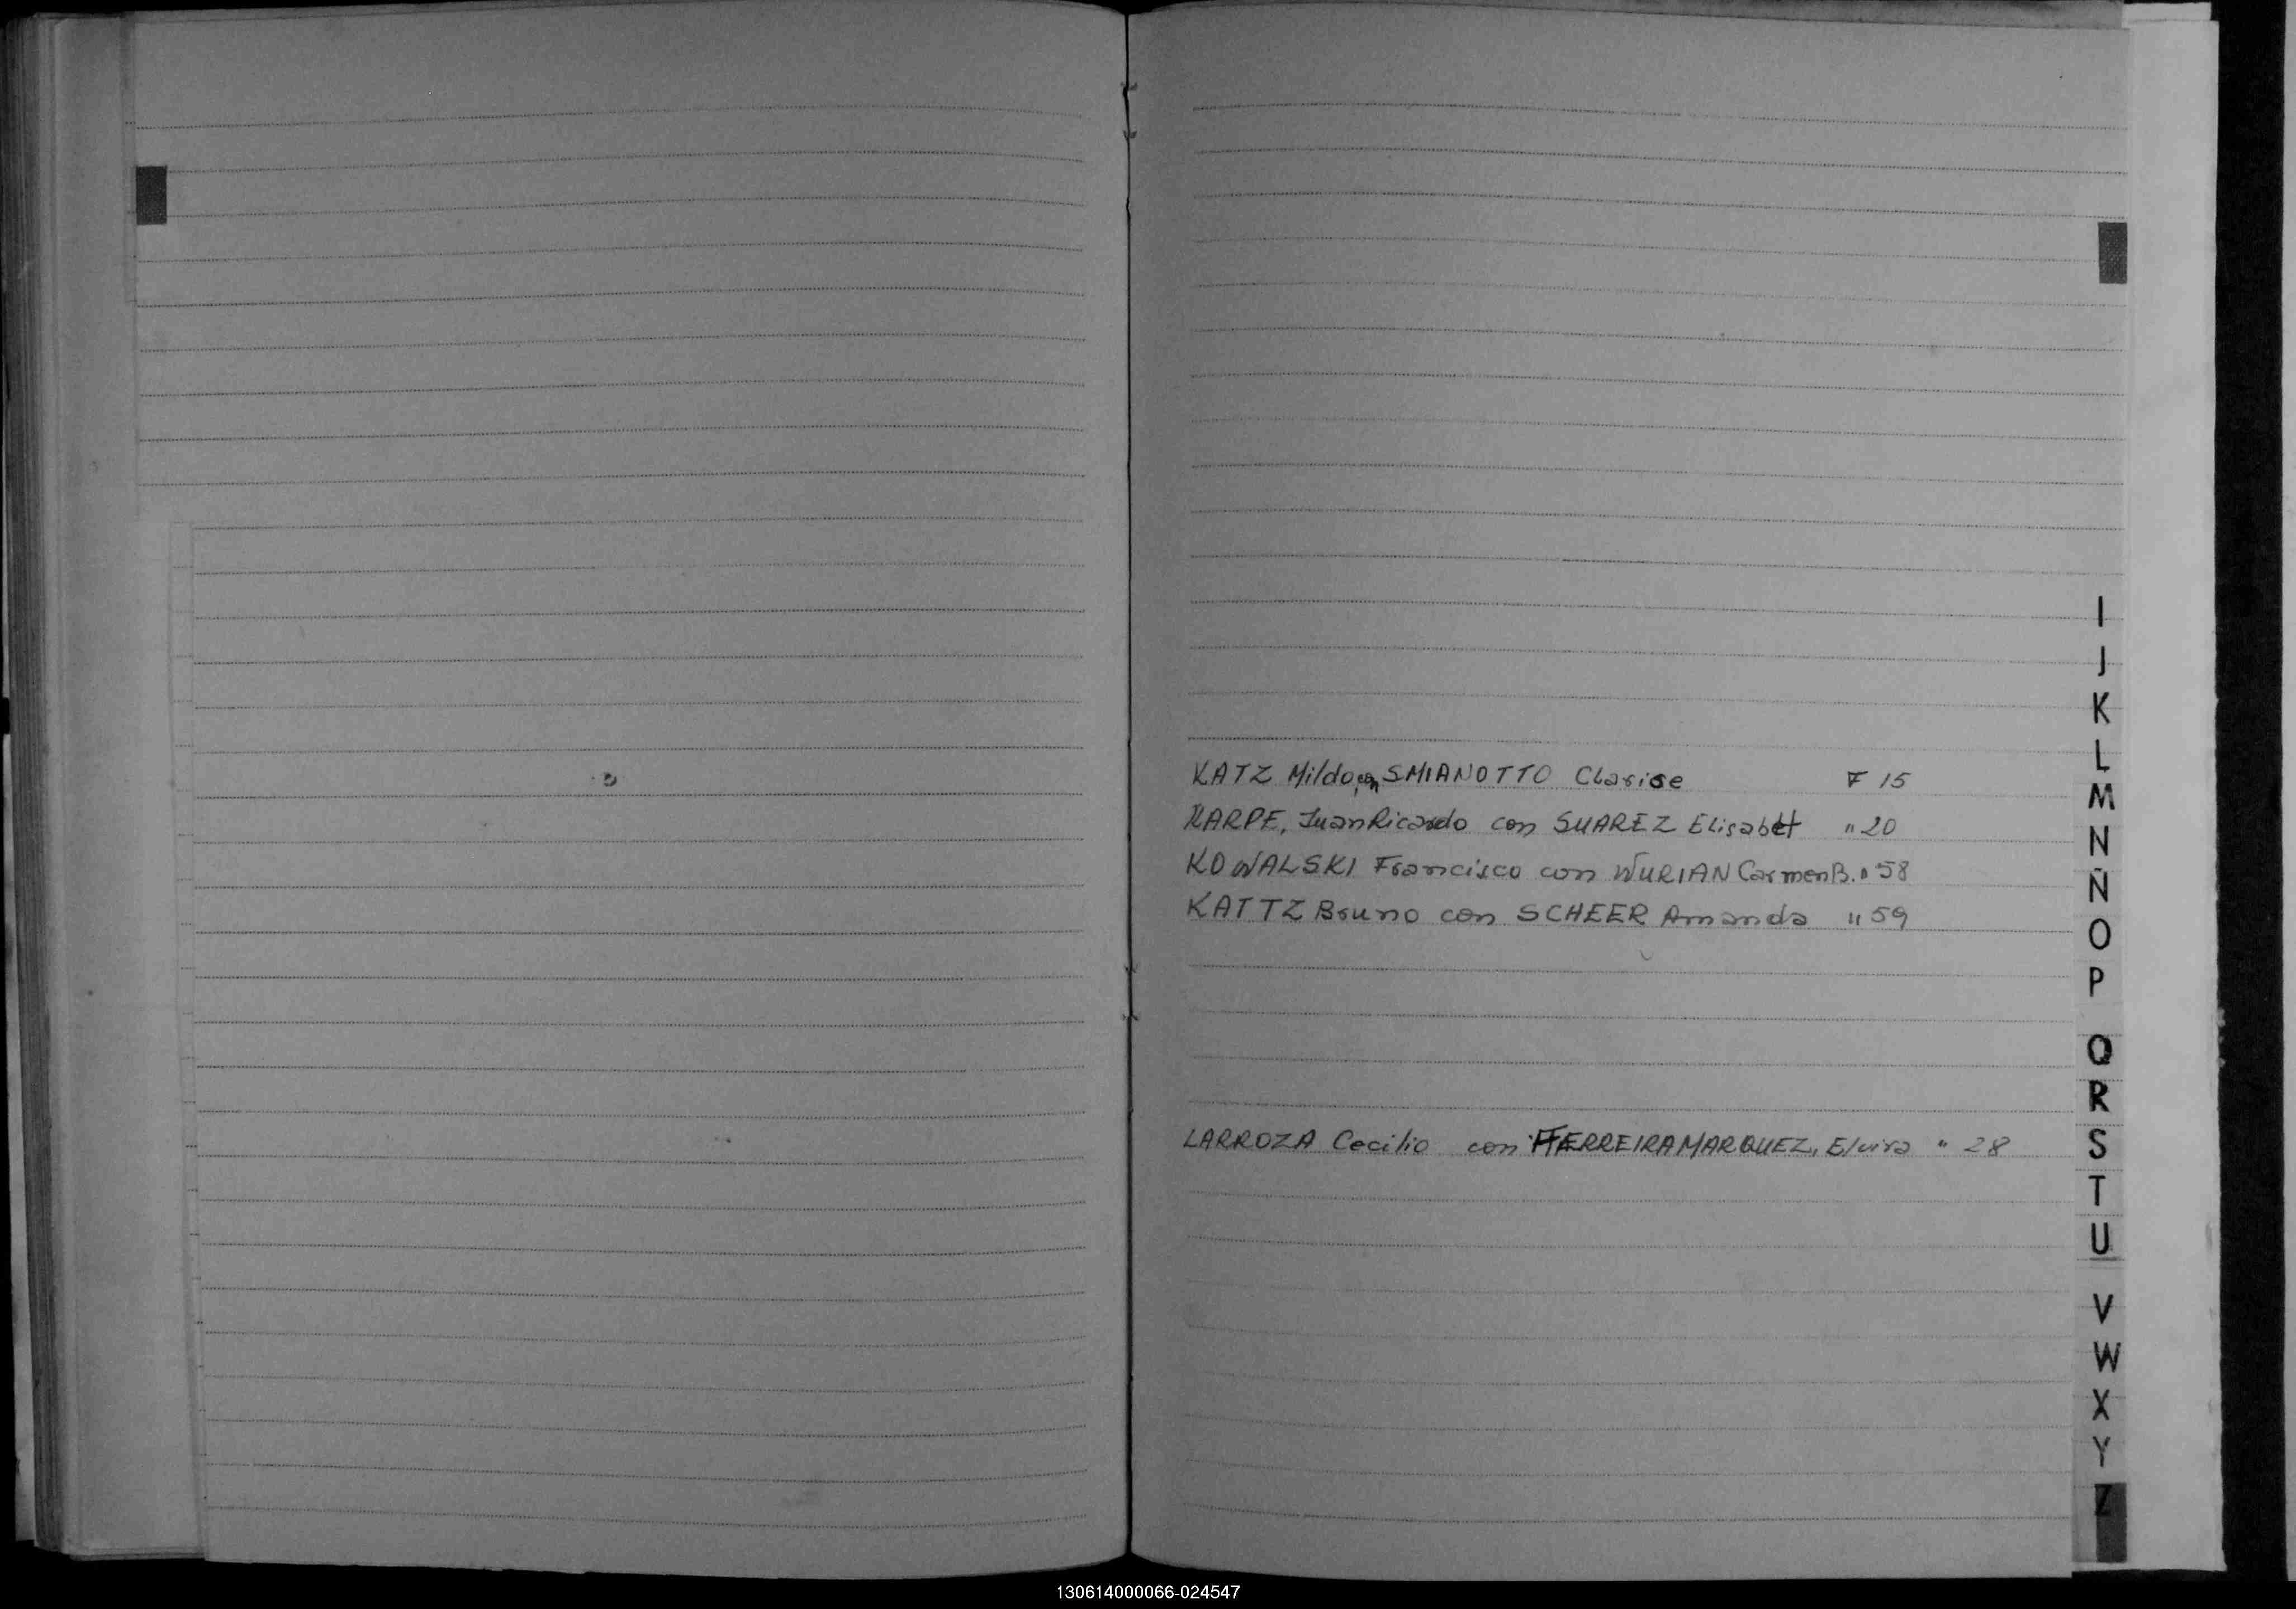 I
J
K
L
KATZ Mildo, con SMIANOTTO Clarise F 15
M
KARPE, Juan Ricardo con SUAREZ Elisabet " 20
N
KOWALSKI Francisco con WURIAN Carmen B. " 58
Ñ
KATTZ Bruno con SCHEER Amanda " 59
O
P
Q
R
LARROZA Cecilio con FERREIRA MARQUEZ, Elvira " 28
S
T
U
V
W
X
Y
Z
130614000066-024547